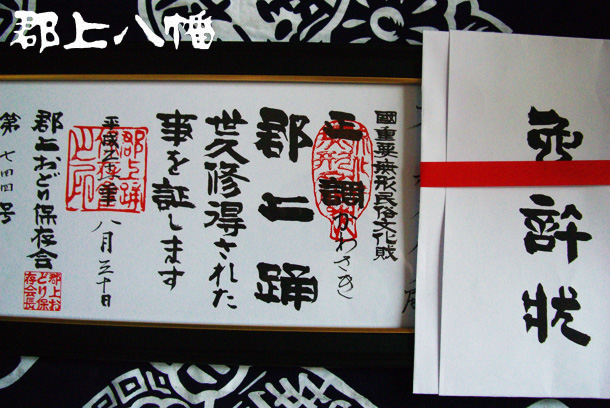 郡上八幡
免許状
國重要無形民俗文化財
正調かわさき
郡上踊
世久修得された
事を証します
平成
八月三十日
郡上おどり保存会
郡上おどり保存会長
第七四四号